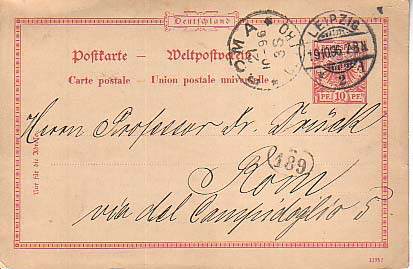 Deutschland
Postkarte – Weltpostverein
Carte postale – Union postale universelle
ROMA
10-96
LEIPZIG
19.10.96
2
1 PF. 10 PF.
Nur für die Adresse
Herrn Professor Dr.
189
Rom
via del Campidoglio 5